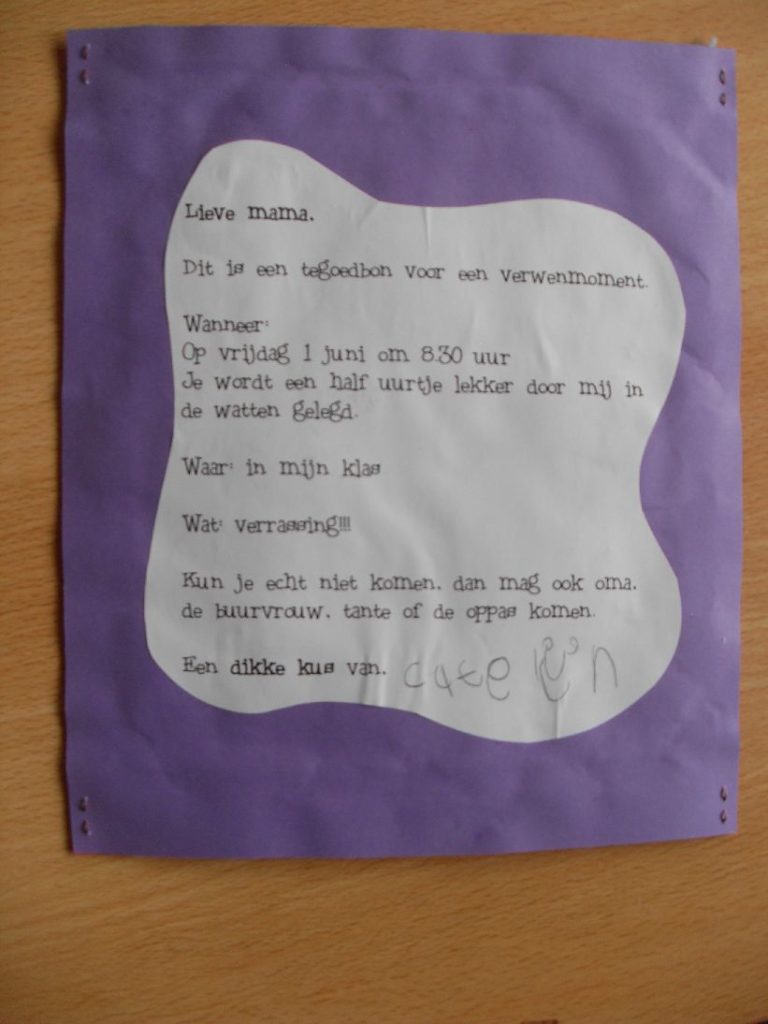 Lieve mama,
Dit is een tegoedbon voor een verwenmoment.
Wanneer:
Op vrijdag 1 juni om 8.30 uur
Je wordt een half uurtje lekker door mij in
de watten gelegd.
Waar: in mijn klas
Wat: verrassing!!!
Kun je echt niet komen, dan mag ook oma,
de buurvrouw, tante of de oppas komen.
Een dikke kus van,